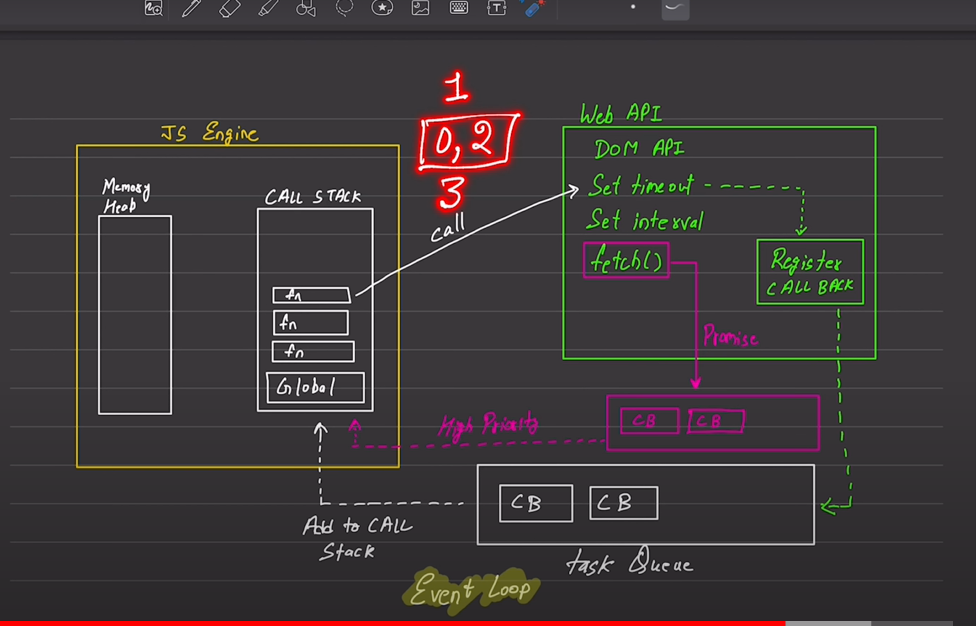 1
0, 2
3
JS Engine
Memory
Heab
CALL STACK
fn
fn
fn
Global
call
Web API
DOM API
Set timeout
Set interval
fetch()
Register
CALL BACK
Promise
High Priority
CB CB
CB CB
Add to CALL
Stack
task Queue
Event Loop